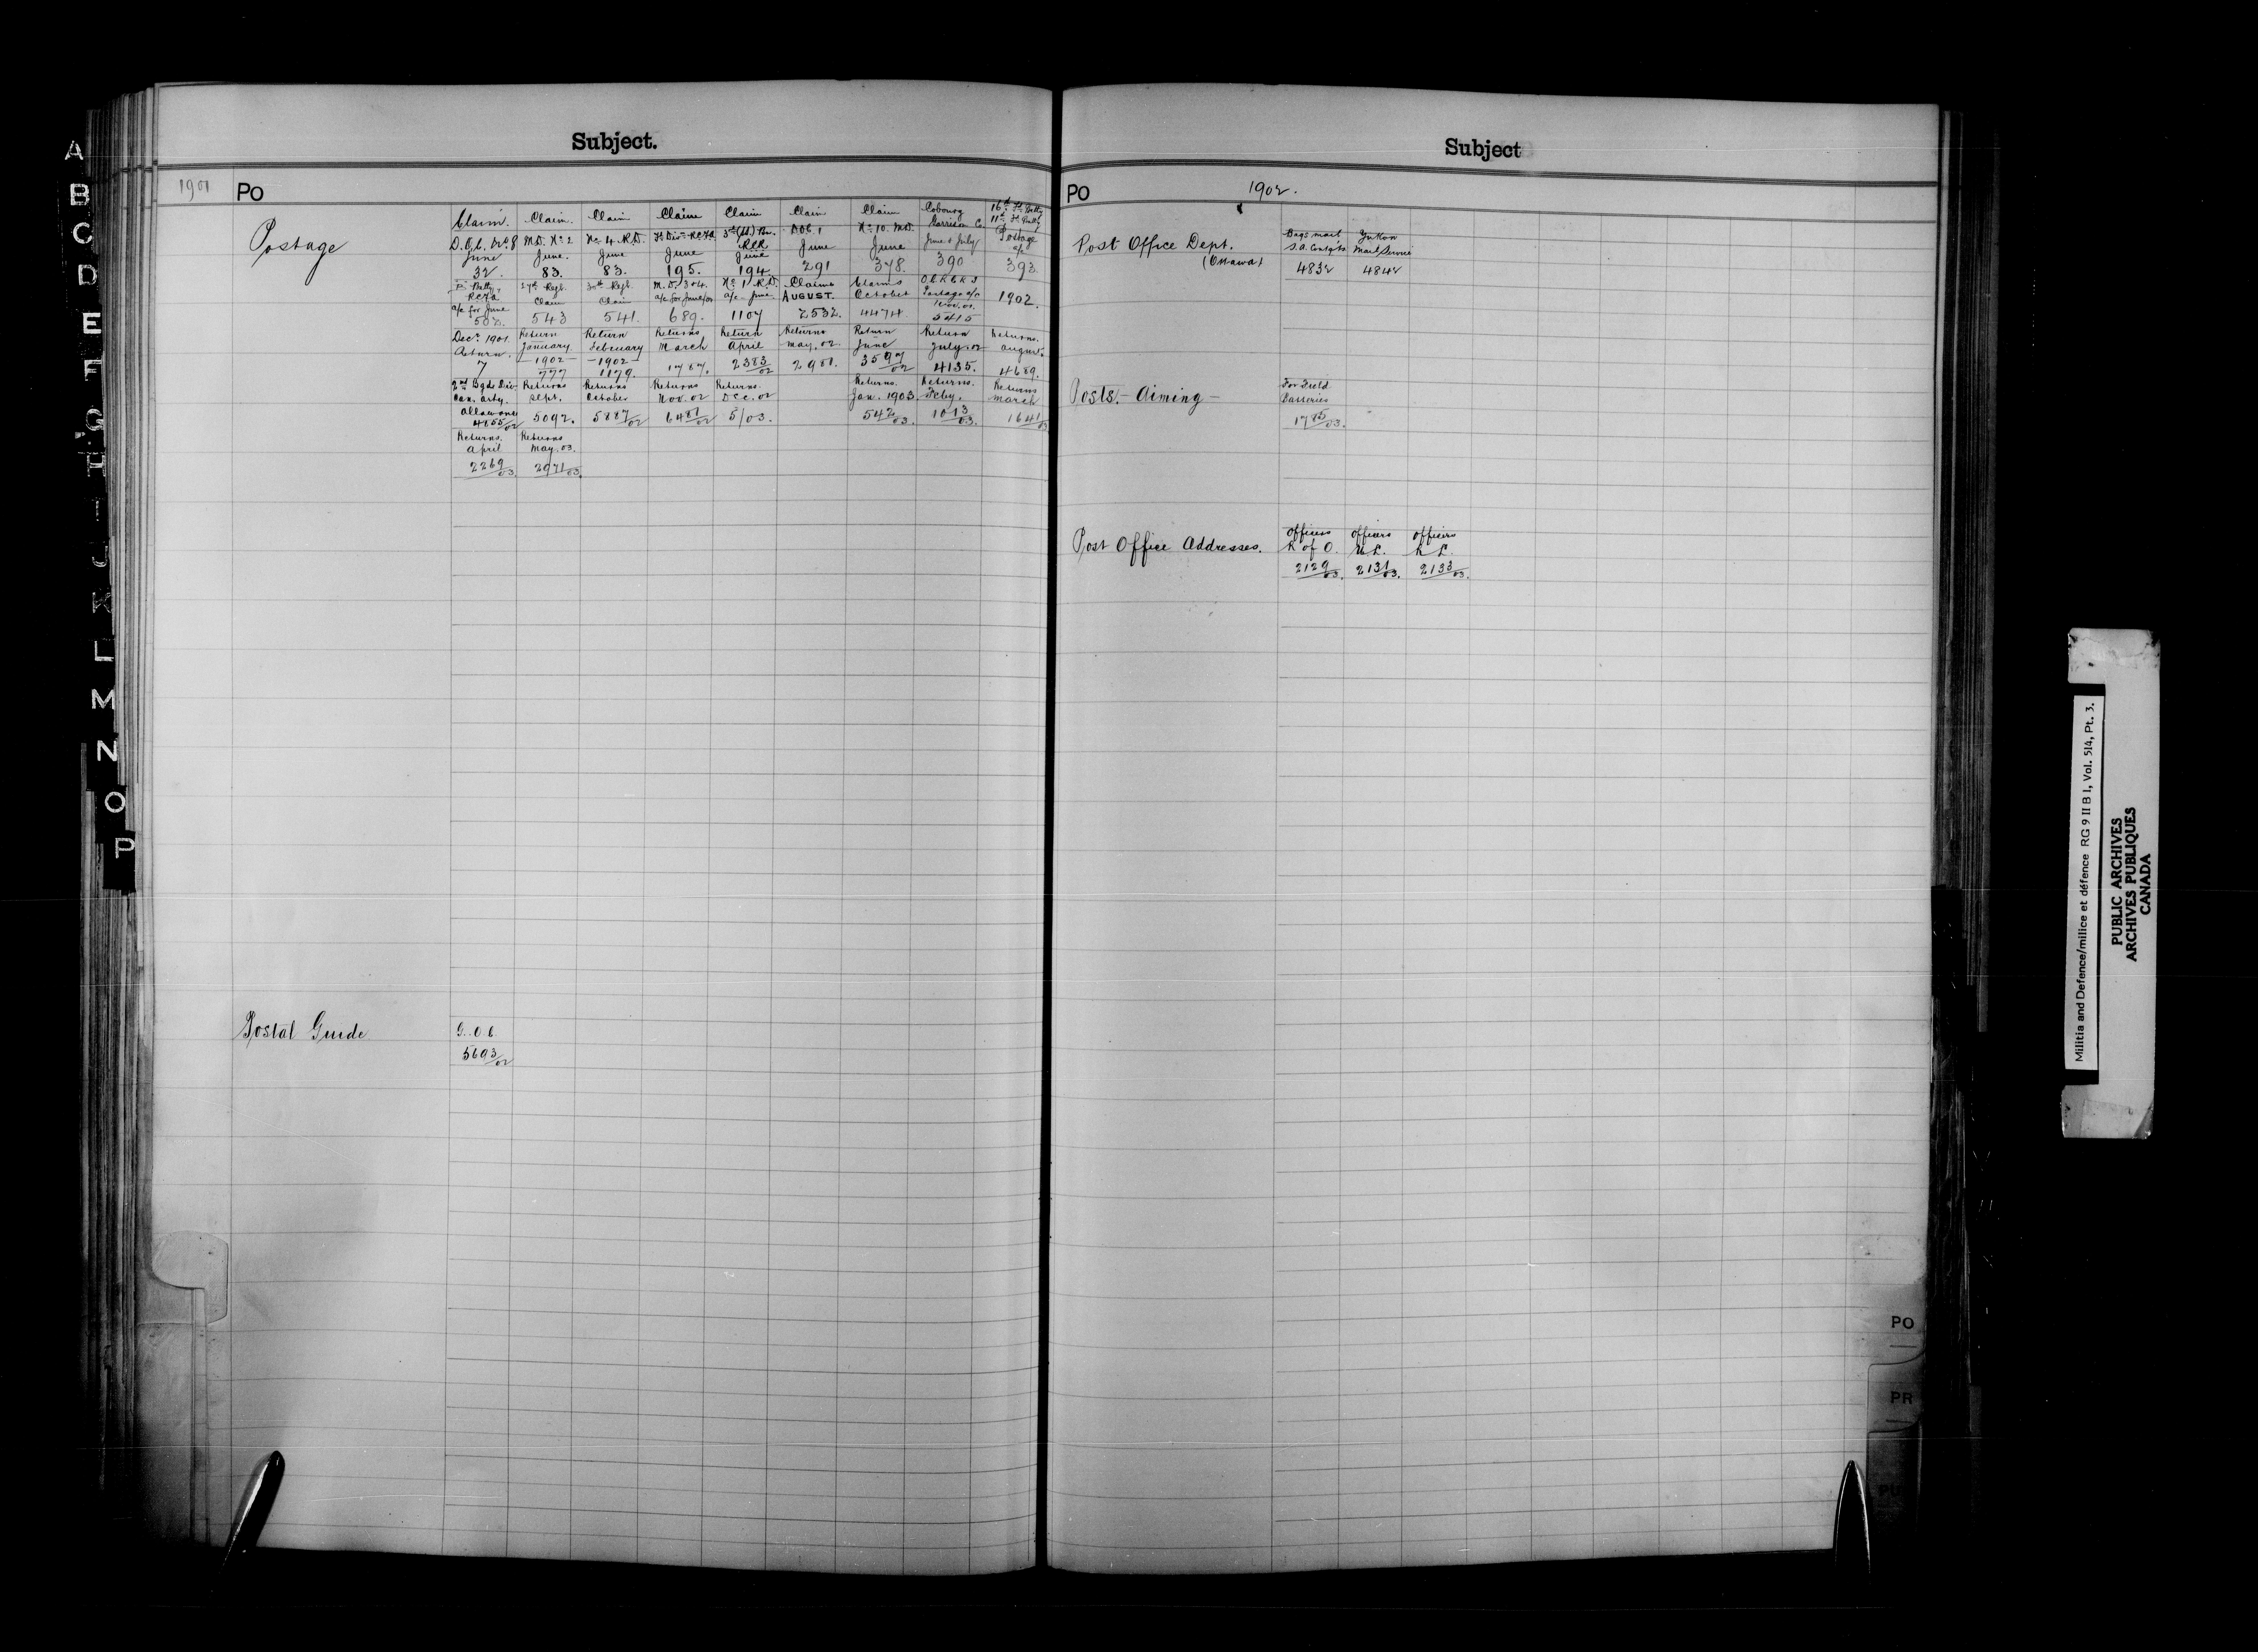 Subject.
1901 PO
Postage
Claim. Claim. Claim Claim Claim Claim Claim Cobourg 16th Fd. Batty
D.O.C. No. 8 M.D. No. 2 No. 4 R.D. Fd. Divn. RCFA 3rd (S.S.) Bn. DOC 1 No. 10. M.D. Garrison Co. 11th Fd. Batty
June June. June June RCR June June June & July Postage
June a/c
32. 83. 83. 195. 194. 291 378. 390 393.
Batty, 27th Regt. 30th Regt. M.D. 3 & 4. No. 1 R.D. Claims Claims 1902.
RCFA Claim Claim a/c for June/01 a/c - June AUGUST. October Postage a/c
a/c for June Nov. 01.
502. 543 541. 689. 1107 2532. 4474. 5415
Decr. 1901 Return Return Returns Return Returns Return Return Returns.
Return. January February March April May. 02 June July. 02 August.
1902 1902
7 777 1179. 1787. 2383/02 2981. 3597/02 4135. 4689.
2nd Bgde Div. Returns Returns Returns Returns. Returns. Returns. Returns
Can. Arty. Sept. October Nov. 02 Dec. 02 Jan. 1903. Feby. March
allowance
4855/02 5092. 5887/02 6481/02 5/03. 542/03. 1013/03. 1641/03
Returns. Returns
April May. 03.
2269/03. 2971/03.
Postal Guide
G.O.C.
5693/02
Subject
PO 1902.
Post Office Dept.
(Ottawa)
Bags mail Yukon
S.A. Contg'ts Mail Service
4832 4842
Posts. - Aiming -
For Field
Batteries
1785/03.
Post Office Addresses.
Officers Officers Officers
R of O. U L. R L.
2129/03. 2131/03. 2133/03.
A
B
C
D
E
F
G
H
I
J
K
L
M
N
O
P
PO
PR
PU
Militia and Defence/milice et défence RG 9 II B 1, Vol. 514, Pt. 3.
PUBLIC ARCHIVES
ARCHIVES PUBLIQUES
CANADA